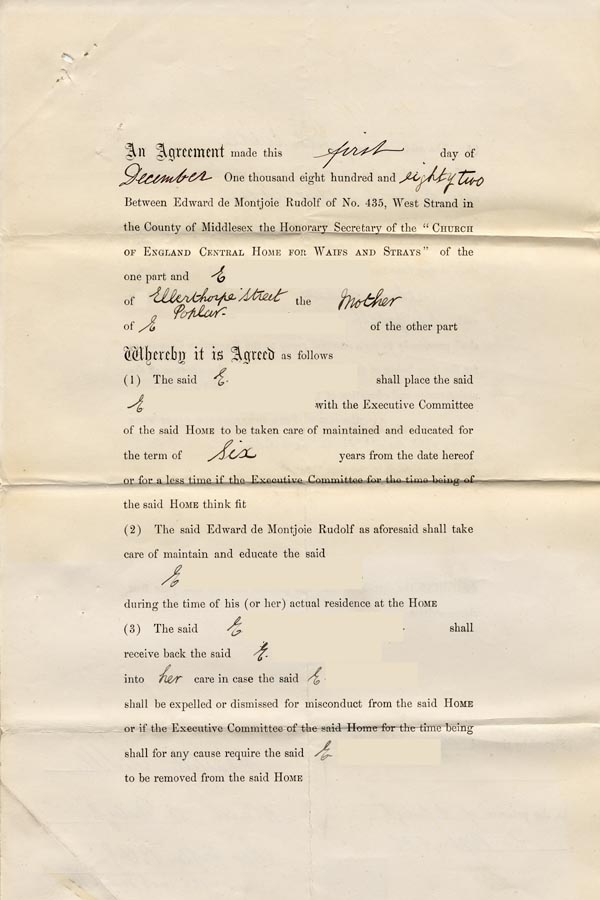 An Agreement made this first day of
December One thousand eight hundred and eighty two
Between Edward de Montjoie Rudolf of No. 435, West Strand in
the County of Middlesex the Honorary Secretary of the “Church
of England Central Home for Waifs and Strays” of the
one part and E
of Ellerthorpe Street the Mother
Poplar.
of E of the other part
Whereby it is Agreed as follows
(1) The said E. shall place the said
E with the Executive Committee
of the said Home to be taken care of maintained and educated for
the term of Six years from the date hereof
or for a less time if the Executive Committee for the time being of
the said Home think fit
(2) The said Edward de Montjoie Rudolf as aforesaid shall take
care of maintain and educate the said
E
during the time of his (or her) actual residence at the Home
(3) The said E shall
receive back the said E.
into her care in case the said E
shall be expelled or dismissed for misconduct from the said Home
or if the Executive Committee of the said Home for the time being
shall for any cause require the said E
to be removed from the said Home